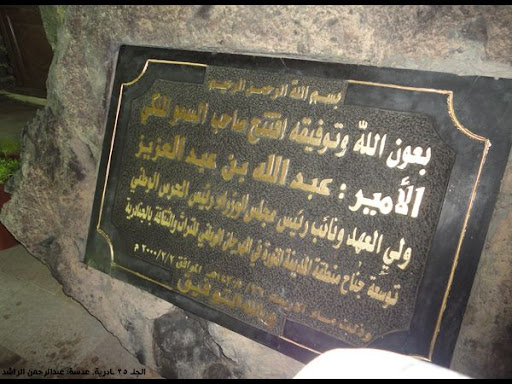 بسم الله الرحمن الرحيم
بعون الله وتوفيقه افتتح صاحب السمو الملكي
الأمير : عبد الله بن عبد العزيز
ولي العهد ونائب رئيس مجلس الوزراء ورئيس الحرس الوطني
توسعة جناح منطقة المدينة المنورة في المهرجان الوطني للتراث والثقافة بالجنادرية
وذلك مساء الموافق ٢٠٠٠/٢/٢ م
التوفيق
الجنادرية ٢٥. عدسة: عبدالرحمن الراشد